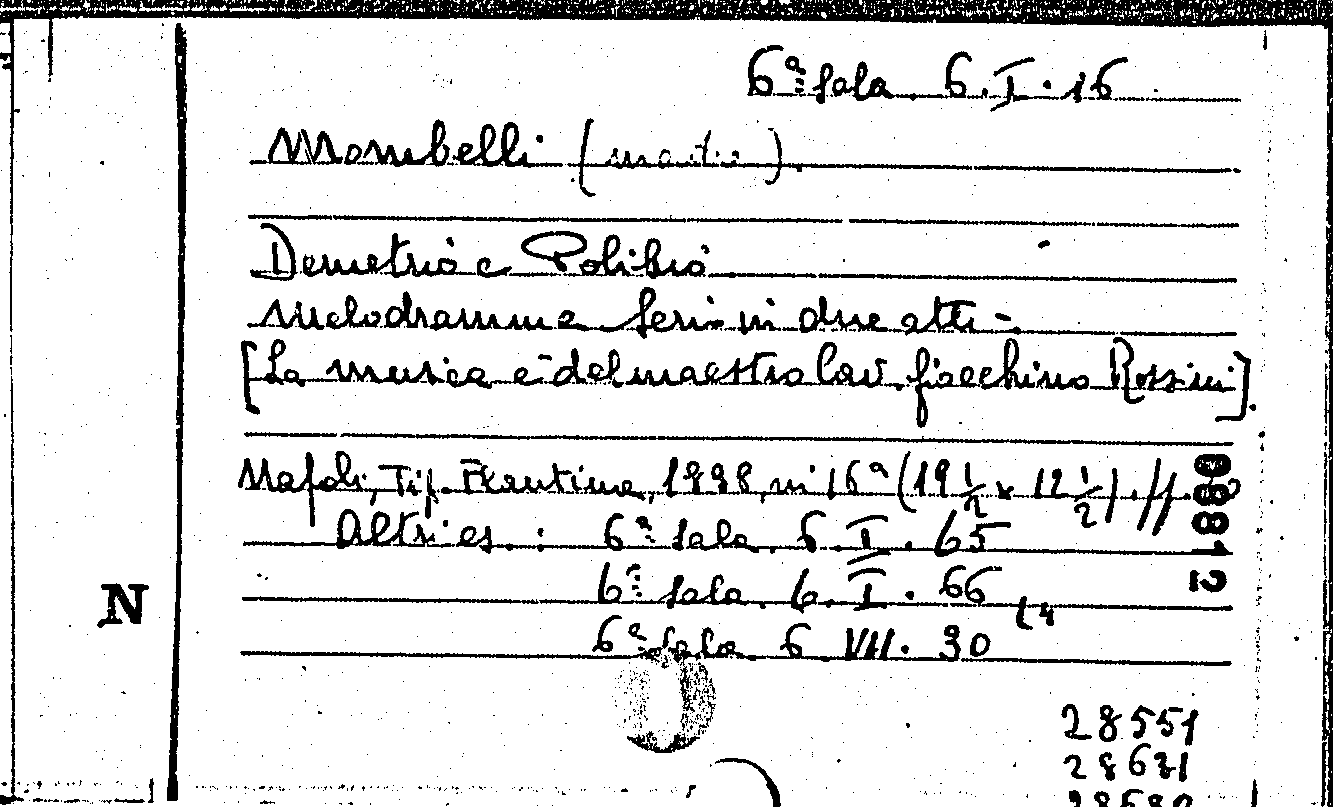 6ª Sala. 6. I. 16
Mombelli
Demetrio e Polibio
Melodramma Serio in due atti -.
[La musica è del maestro Cav. Giacchino Rossini].
Napoli, Tip. Flautina, 1838, in 16º (19 1/2 x 12 1/2).
Altri es.: 6ª Sala. 6. I. 65
6ª Sala. 6. I. 66
6ª Sala 6 VII. 30
N
28551
28631